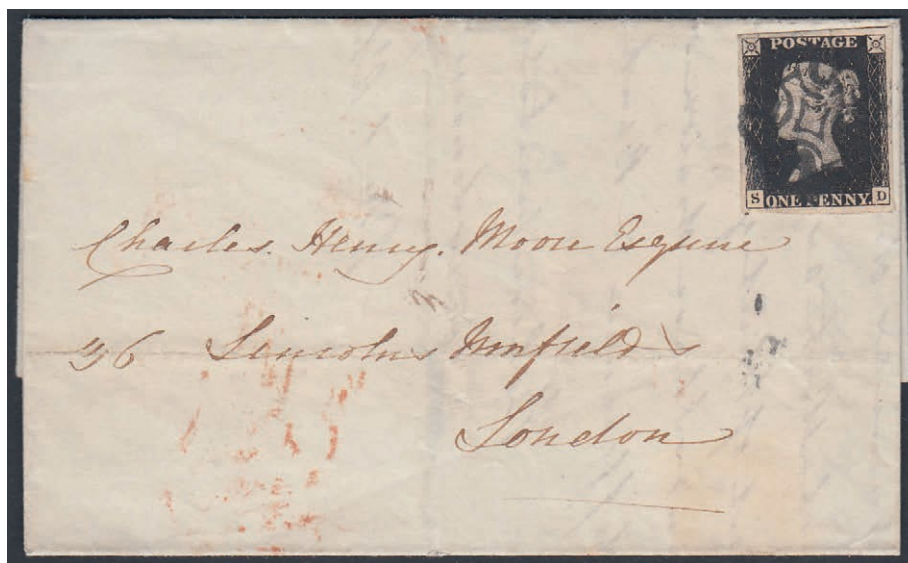 POSTAGE
S ONE PENNY. D
Charles. Henry. Moore Esquire
36 Lincolns Innfields
London